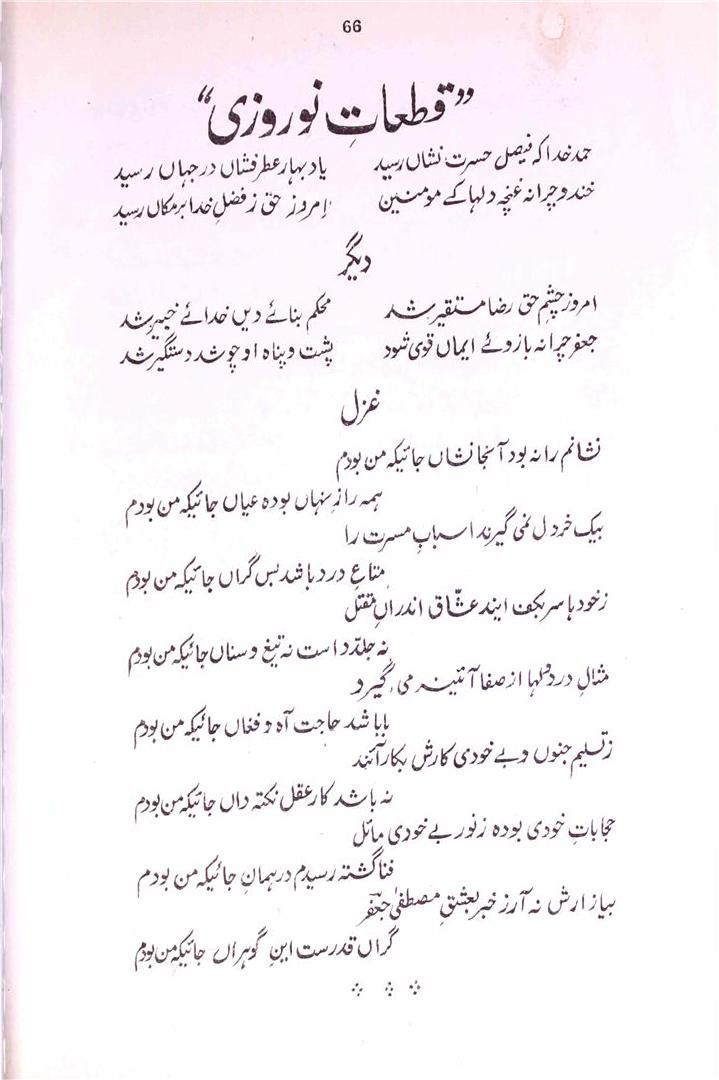 66
”قطعاتِ نوروزی“
حمد خدا کہ فیصل حسرت نشاں رسید یاد بہار عطر فشاں در جہاں رسید
خندد چرا نہ غنچہ دلہا کے مومنین امروز حق ز فضلِ خدا بر مکاں رسید
دیگر
امروز چشمِ حق رضا مستقیر شد محکم بنائے دیں خدائے خبیر شد
جعفر چرا نہ بازوئے ایماں قوی شود پشت و پناہ او چو شد دستگیر شد
غزل
نشانم را نہ بود آنجا نشاں جائیکہ من بودم
ہمہ رازِ نہاں بودہ عیاں جائیکہ من بودم
بیک خردل نمی گیرند اسبابِ مسرت را
متاعِ درد باشد بس گراں جائیکہ من بودم
زخود ہا سر بکف ایند عشّاق اندراں مقتل
نہ جلّاد است نہ تیغ و سناں جائیکہ من بودم
مثالِ درد دلہا از صفا آئینہ می گیرد
باشد حاجت آہ و فغاں جائیکہ من بودم
ز تسلیم جنوں و بے خودی کارش بکار آئند
نہ باشد کار عقل نکتہ داں جائیکہ من بودم
حجاباتِ خودی بودہ زنور بے خودی مائل
فنا گشتہ رسیدم در ہمانِ جائیکہ من بودم
ببازارش نہ آرز خبر بعشقِ مصطفیٰ جعفر
گراں قدرست ایں گوہراں جائیکہ من بودم